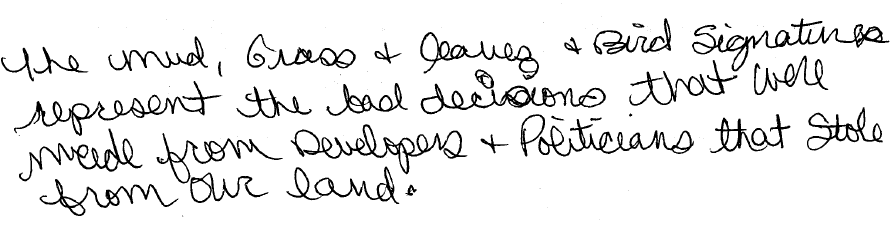 The mud, Grass + leaves + Bird Signatures
represent the bad decisions that were
made from Developers + Politicians that Stole
from our land.